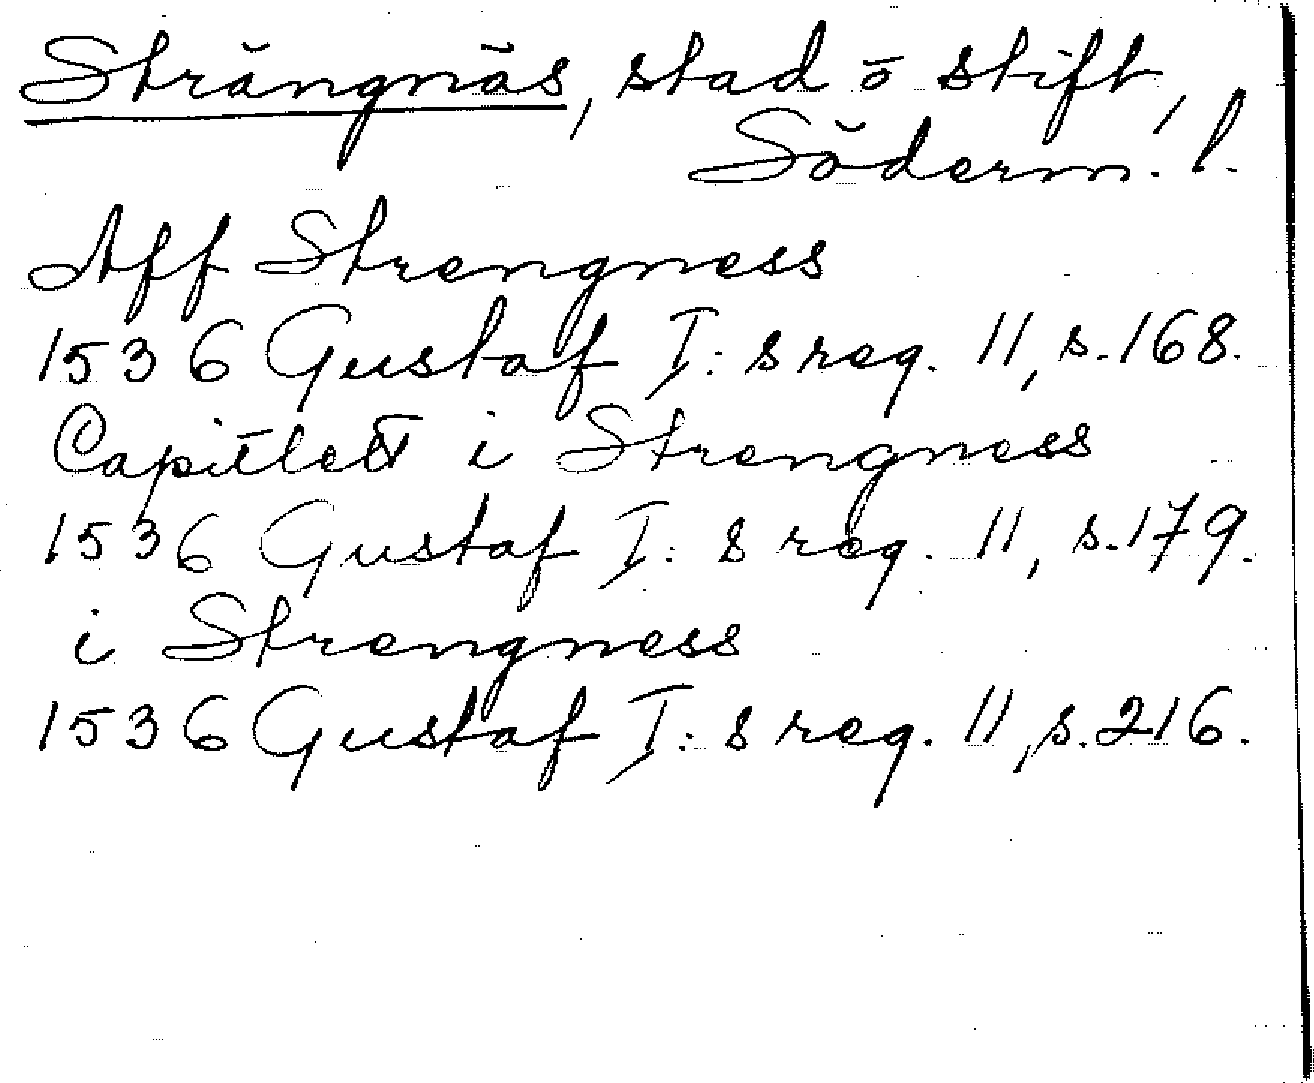 Strängnäs, stad o stift,
Söderm. l.
Aff Strengness
1536 Gustaf I:s reg. 11, s. 168.
Capitlett i Strengness
1536 Gustaf I:s reg. 11, s. 179.
i Strengness
1536 Gustaf I:s reg. 11, s. 216.